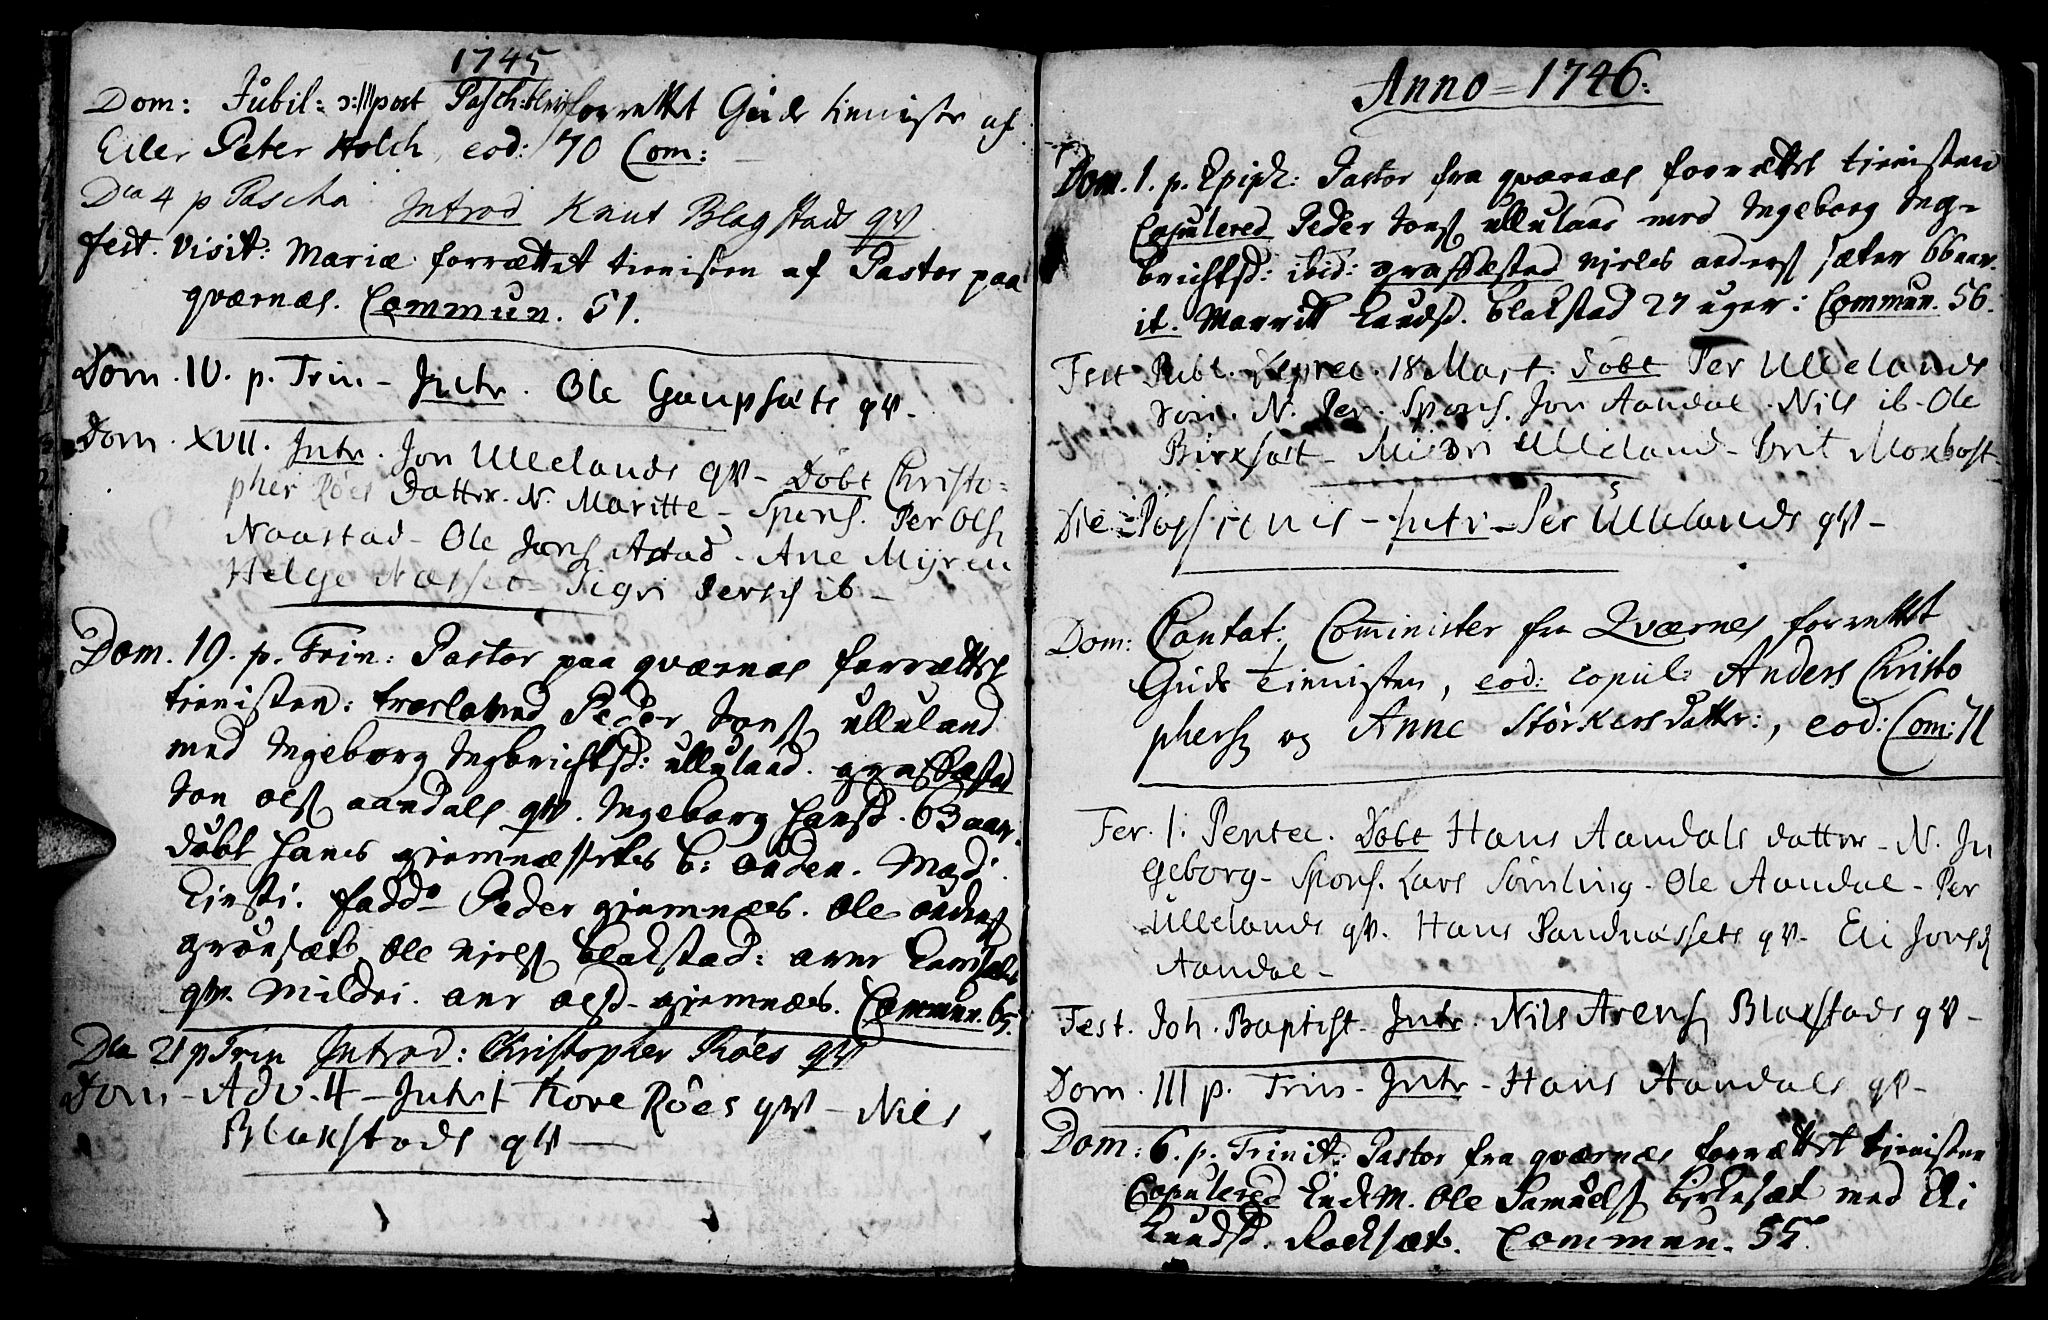 1745
Dom: Jubil: ɔ: III post Pasch: blev forrettet Guds tienniste af
Eiler Peter Holch, eod: 70 Com:
Dca 4 p Pascha Introd Knut Blagstads qv
fest. Visit: Mariæ forrættet tienisten af Pastor paa
qværnæs. Commun. 51.
Dom. IV. p. Trin - Intr. Ole Gaupsæts qv -
Dom. XVII. Intr. Jon Ullelands qv - Döbt Christo=
pher Röes Datter. N. Maritte - Spons. Per Ols
Naastad - Ole Jons Astad - Ane Myren
Helge Næsset - Sigri Persd ib -
Dom. 19. p. Trin: Pastor paa qværnæs forrættet
tienisten: troelowed Peder Jons ulluland
med Ingeborg Ingbrichtsd: ullulaad. grafkæstad
Jon ols aandals qv. Ingeborg Hansd. 63 aar.
döbt Hans giemnæs b: anden. Mod:
Kirsti. fadd Peder giemnæs. Ole anders
grönsæt, Ole Niels blakstad:
qv. Mildri. ane olsd giemnæs. Commun. 65.
Dca 21 p Trin Introd: Christopher Röes qv
Dom - Adv. 4 - Intr. Tore Röes qv - Nils
Blakstads qv -
Anno = 1746:
Dom. 1. p. Epiph: Pastor fra qværnæs forrættet tienisten
Copulered Peder Jons ullulaas med Ingeborg Ing=
brichtsd: ibid: grafkæstad Niels anders sæter 66 aar.
it. Marritt Knudsd. blakstad 27 uger: Commun. 56.
Fest Publ. Deprec. 18 Mart. Döbt Per Ullelands
Sön. N. Per. Spons. Jon Aandal - Nils ib - Ole
Birksæt - Mildri Ulleland - Brit Moxbost -
Die - - Intr - Per Ullelands qv -
Dom: Cantat: Cominister fra Qværnes forrettet
Guds Tienisten, eod: copul: Anders Christo
phers og Anne Störkersdatter:, eod: Com: 71
Fer. 1. Pentec. Döbt Hans Aandals datter - N. In
geborg - Spons. Lars Sömling - Ole Aandal - Per
Ullelands qv. Hans Sandnæssets qv - Eli Jonsd
Aandal -
Fest. Joh. Baptist - Intr. Nils Arens Blakstads qv -
Dom. III p. Trin - Intr - Hans Aandals qv -
Dom: 6. p. Trinit: Pastor fra qværnæs forrættet tienisten
Copulered Enkm. Ole Samuels birkesæt med Eli
Knudsd. Roaksæt. Commun. 55.